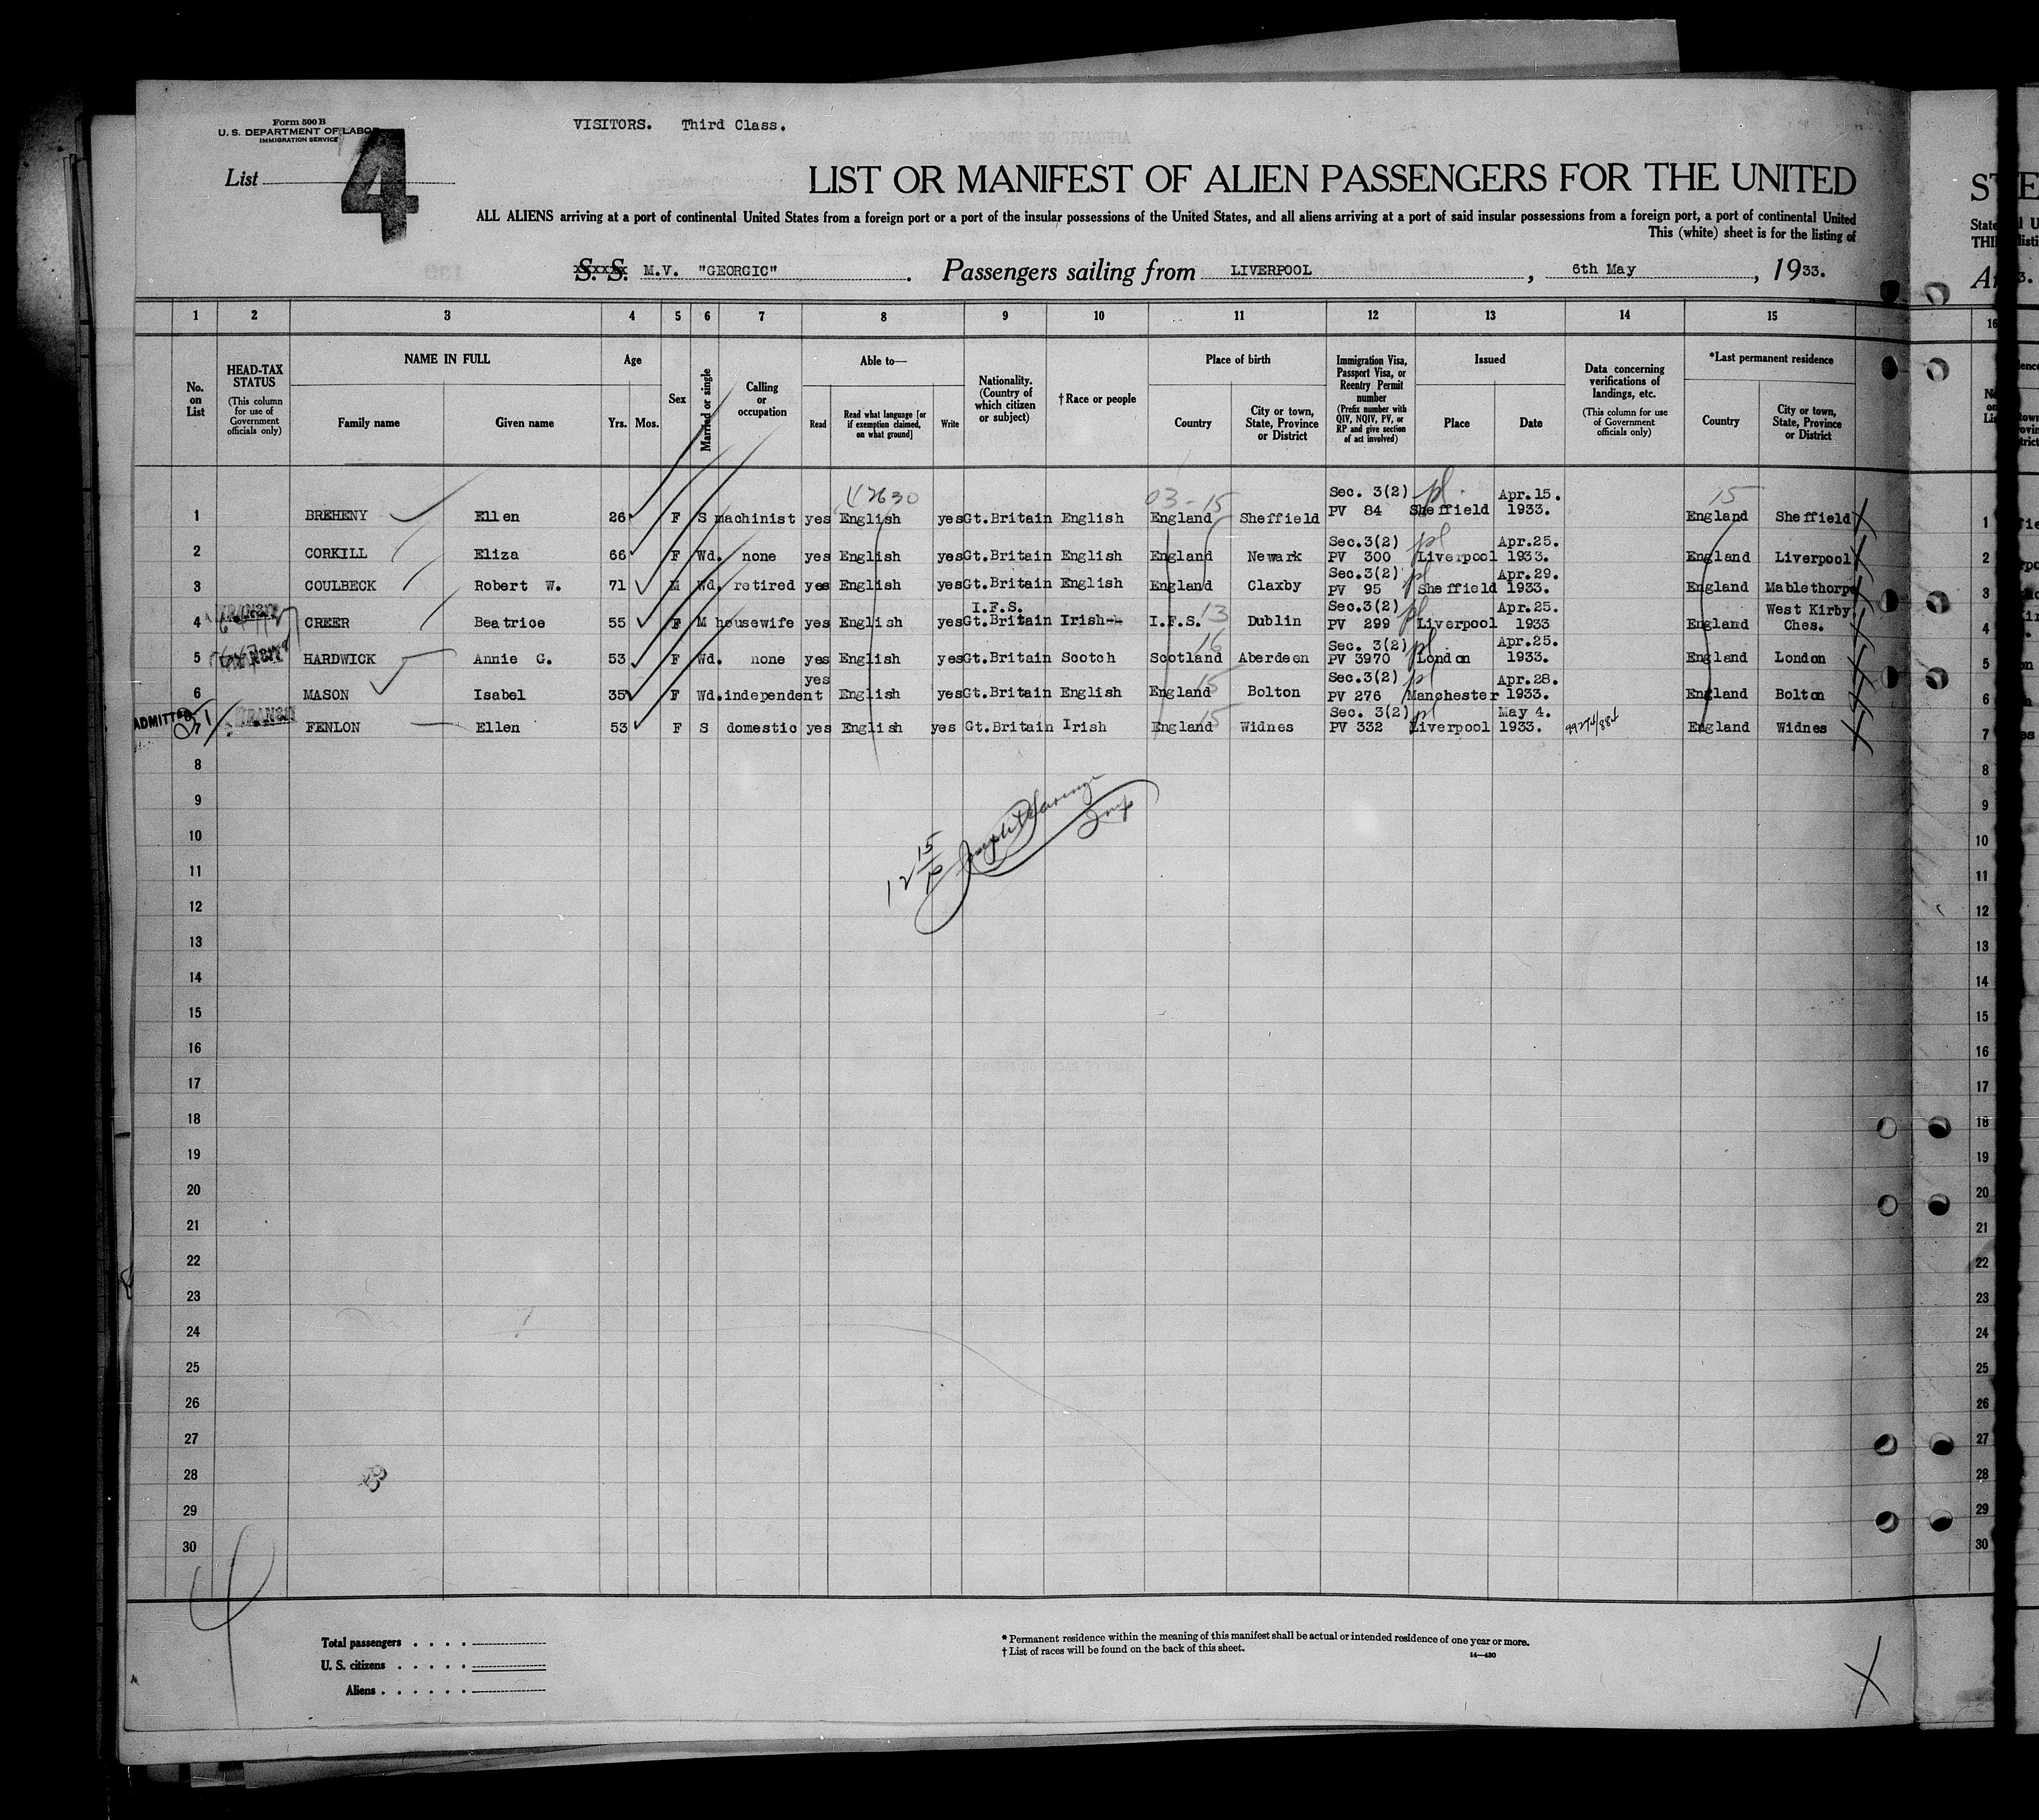 Form 500 B
U. S. DEPARTMENT OF LABOR
IMMIGRATION SERVICE
VISITORS. Third Class.
List 4
LIST OR MANIFEST OF ALIEN PASSENGERS FOR THE UNITED
ALL ALIENS arriving at a port of continental United States from a foreign port or a port of the insular possessions of the United States, and all aliens arriving at a port of said insular possessions from a foreign port, a port of continental United
This (white) sheet is for the listing of
S. S. M.V. "GEORGIC". Passengers sailing from LIVERPOOL, 6th May, 1933.
1 2 3 4 5 6 7 8 9 10 11 12 13 14 15
No. on List
HEAD-TAX STATUS
(This column for use of Government officials only)
NAME IN FULL
Family name Given name
Age
Yrs. Mos.
Sex
Married or single
Calling or occupation
Able to—
Read
Read what language [or if exemption claimed, on what ground]
Write
Nationality. (Country of which citizen or subject)
†Race or people
Place of birth
Country
City or town, State, Province or District
Immigration Visa, Passport Visa, or Reentry Permit number
(Prefix number with QIV, NQIV, PV, or RP and give section of act involved)
Issued
Place Date
Data concerning verifications of landings, etc.
(This column for use of Government officials only)
*Last permanent residence
Country
City or town, State, Province or District
42630 03-15 Sec. 3(2) pl. Apr. 15. 15
1 BREHENY Ellen 26 F S machinist yes English yes Gt.Britain English England Sheffield PV 84 Sheffield 1933. England Sheffield
Sec.3(2) pl Apr.25.
2 CORKILL Eliza 66 F Wd. none yes English yes Gt.Britain English England Newark PV 300 Liverpool 1933. England Liverpool
Sec.3(2) pl Apr.29.
3 COULBECK Robert W. 71 M Wd. retired yes English yes Gt.Britain English England Claxby PV 95 Sheffield 1933. England Mablethorpe
TRANSIT I.F.S. 13 Sec.3(2) pl Apr.25. West Kirby.
4 CREER Beatrice 55 F M housewife yes English yes Gt.Britain Irish-- I.F.S. Dublin PV 299 Liverpool 1933 England Ches.
TRANSIT 16 Sec. 3(2) pl Apr.25.
5 HARDWICK Annie G. 53 F Wd. none yes English yes Gt.Britain Scotch Scotland Aberdeen PV 3970 London 1933. England London
yes 15 Sec.3(2) pl Apr.28.
6 MASON Isabel 35 F Wd. independent English yes Gt.Britain English England Bolton PV 276 Manchester 1933. England Bolton
ADMITTED TRANSIT 15 Sec. 3(2) pl May 4.
7 FENLON Ellen 53 F S domestic yes English yes Gt.Britain Irish England Widnes PV 332 Liverpool 1933. England Widnes
8
9
10
11
12
13
14
15
16
17
18
19
20
21
22
23
24
25
26
27
28
29
30
Total passengers
U. S. citizens
Aliens
* Permanent residence within the meaning of this manifest shall be actual or intended residence of one year or more.
† List of races will be found on the back of this sheet.
14—430